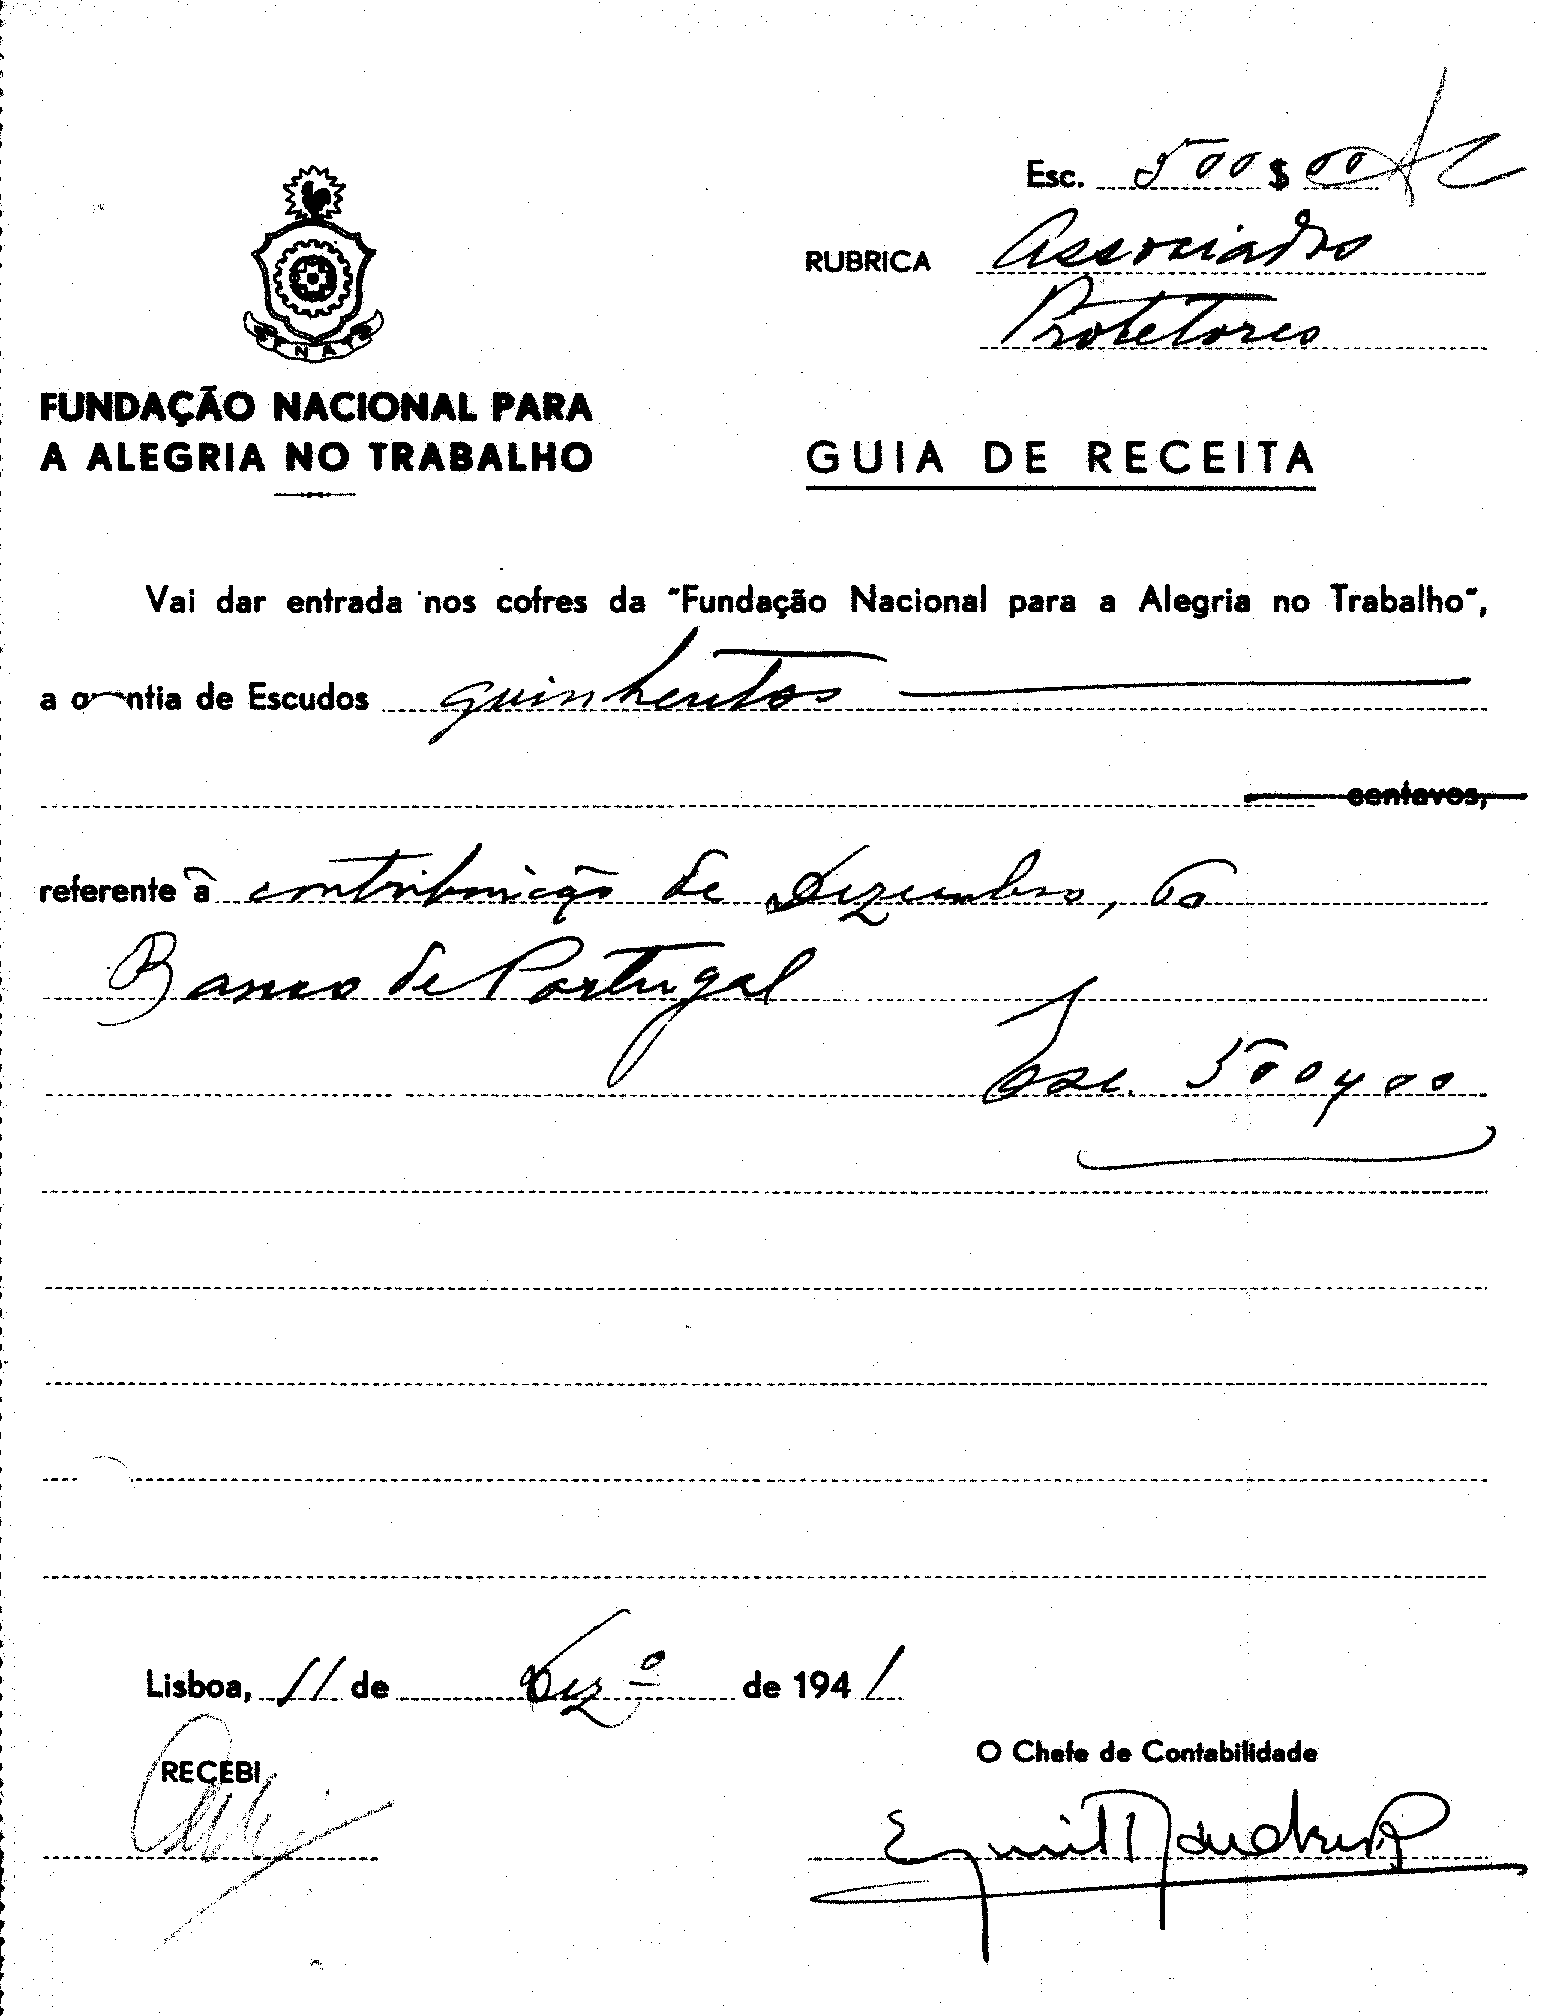 Esc. 500$00
RUBRICA Associados
Protetores
FNAT
FUNDAÇÃO NACIONAL PARA
A ALEGRIA NO TRABALHO
GUIA DE RECEITA
Vai dar entrada nos cofres da "Fundação Nacional para a Alegria no Trabalho",
a quantia de Escudos quinhentos
centavos,
referente à contribuição de Dezembro, do
Banco de Portugal
Esc. 500$00
Lisboa, 11 de Dezº de 1941
RECEBI
O Chefe de Contabilidade